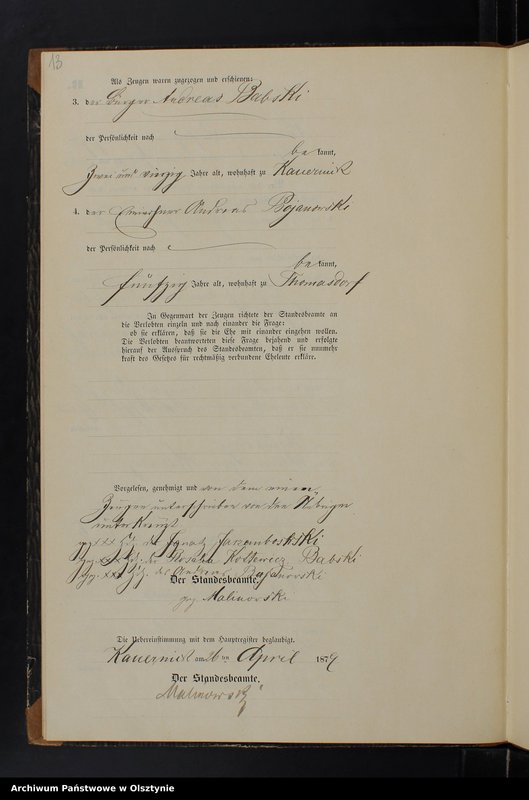 13
Als Zeugen waren zugezogen und erschienen:
3. der Bürger Andreas Babski
der Persönlichkeit nach
be kannt,
zwei und vierzig Jahre alt, wohnhaft zu Kauernick
4. der Einwohner Andreas Bojanowski
der Persönlichkeit nach
be kannt,
fünfzig Jahre alt, wohnhaft zu Thomasdorf
In Gegenwart der Zeugen richtete der Standesbeamte an
die Verlobten einzeln und nach einander die Frage:
ob sie erklären, daß sie die Ehe mit einander eingehen wollen.
Die Verlobten beantworteten diese Frage bejahend und erfolgte
hierauf der Ausspruch des Standesbeamten, daß er sie nunmehr
kraft des Gesetzes für rechtmäßig verbundene Eheleute erkläre.
Vorgelesen, genehmigt und von dem einen
Zeugen unterschrieben von den Übrigen
unterkreuzt
gez. xxx Hdz. des Ignatz
gez. xxx Hdz. der Rosalia Babski
gez. xxx Hdz. des Andreas Bojanowski
Der Standesbeamte.
gez. Malinowski
Die Uebereinstimmung mit dem Hauptregister beglaubigt.
Kauernick am 26 ten April 1879
Der Standesbeamte.
Malinowski
Archiwum Państwowe w Olsztynie